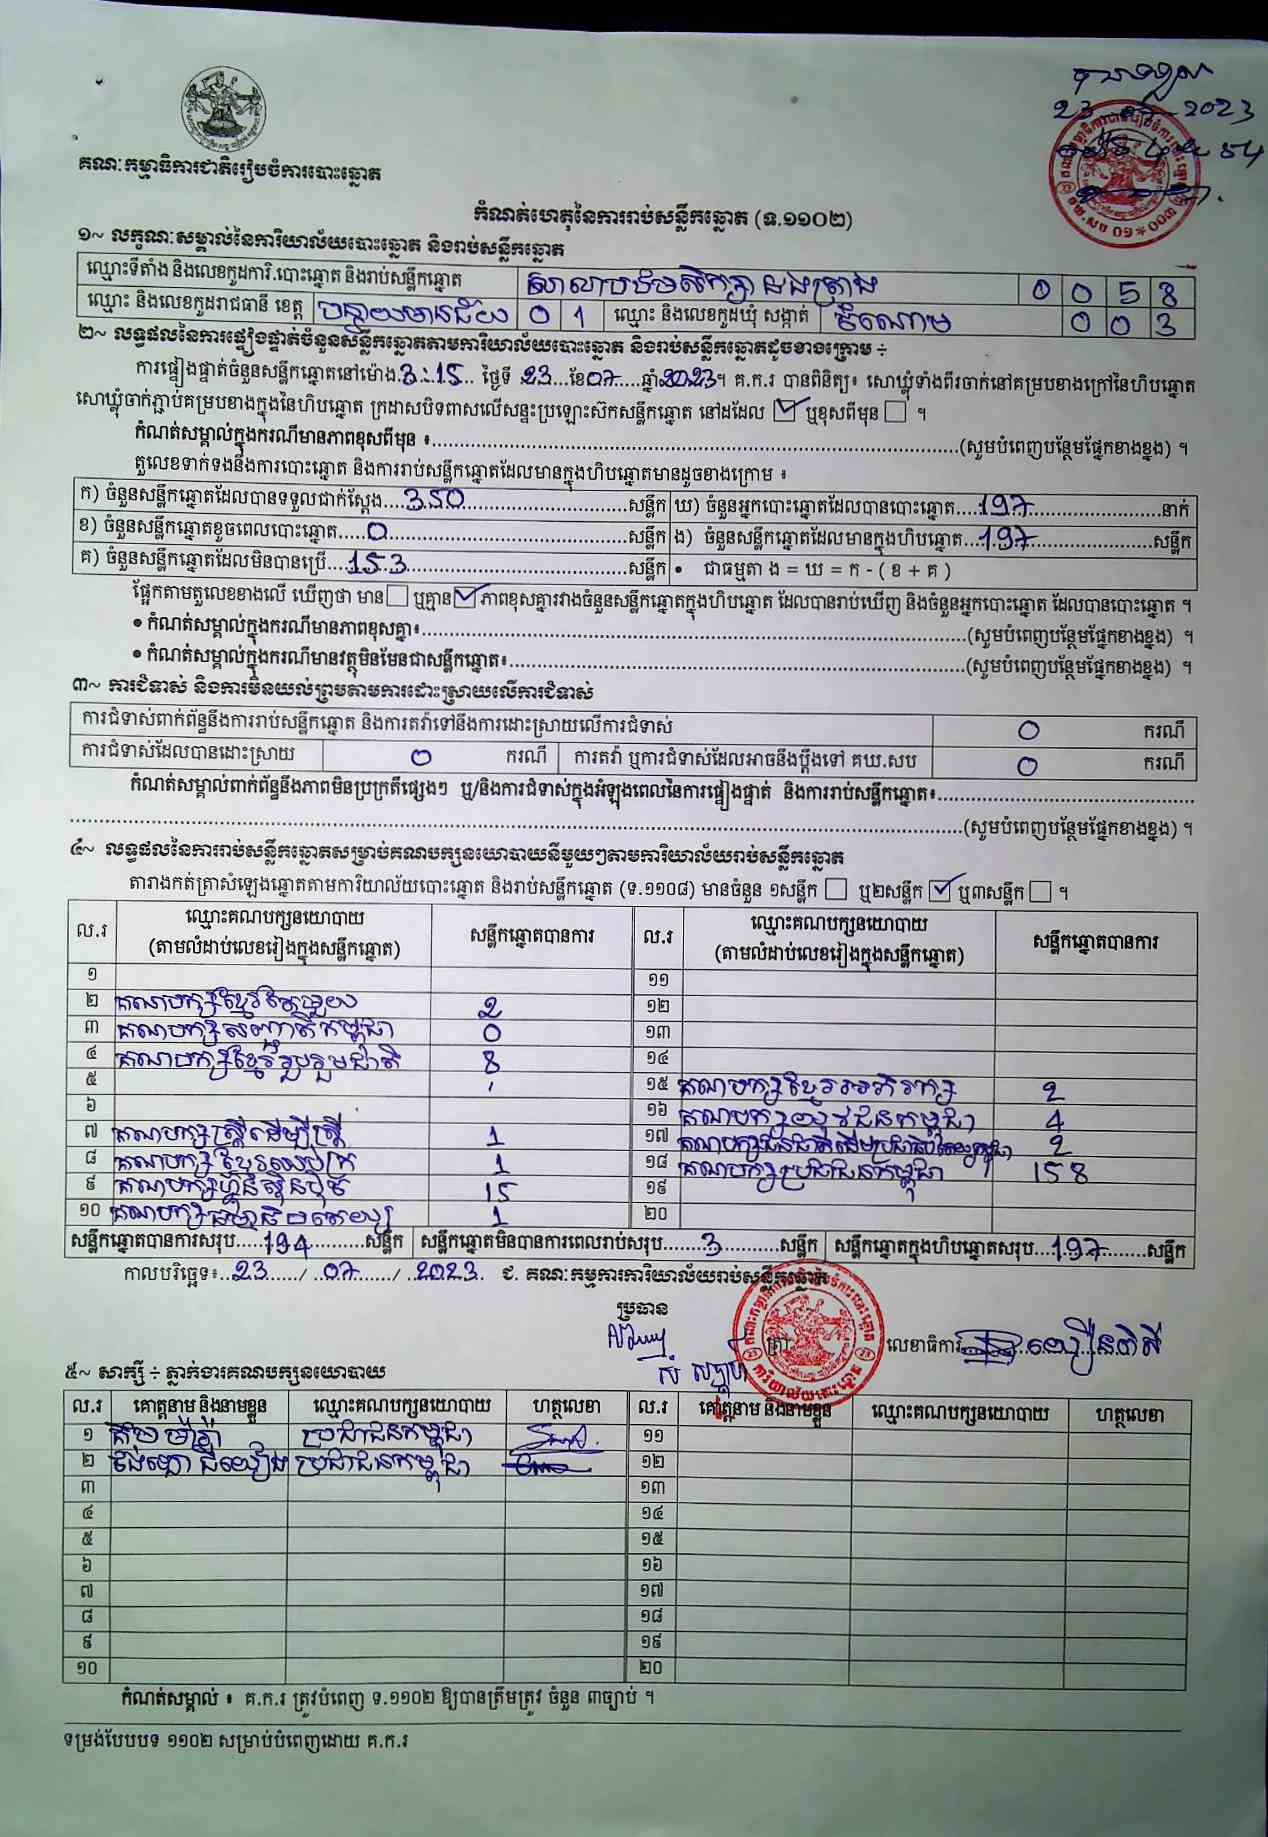 គណៈកម្មាធិការជាតិរៀបចំការបោះឆ្នោត
23 2023
កំណត់ហេតុនៃការរាប់សន្លឹកឆ្នោត (ទ.១១០២)
១~ លក្ខណៈសម្គាល់នៃការិយាល័យបោះឆ្នោត និងរាប់សន្លឹកឆ្នោត
ឈ្មោះទីតាំង និងលេខកូដការិ.បោះឆ្នោត និងរាប់សន្លឹកឆ្នោត 0 0 5 8
ឈ្មោះ និងលេខកូដរាជធានី ខេត្ត បន្ទាយមានជ័យ 0 1 ឈ្មោះ និងលេខកូដឃុំ សង្កាត់ ចំណោម 0 0 3
២~ លទ្ធផលនៃការផ្ទៀងផ្ទាត់ចំនួនសន្លឹកឆ្នោតតាមការិយាល័យបោះឆ្នោត និងរាប់សន្លឹកឆ្នោតដូចខាងក្រោម ÷
ការផ្ទៀងផ្ទាត់ចំនួនសន្លឹកឆ្នោតនៅម៉ោង 3:15 ថ្ងៃទី 23 ខែ 07 ឆ្នាំ 2023 ។ គ.ក.រ បានពិនិត្យ៖ សោឃ្លុំទាំងពីរចាក់នៅគម្របខាងក្រៅនៃហិបឆ្នោត
សោឃ្លុំចាក់ភ្ជាប់គម្របខាងក្នុងនៃហិបឆ្នោត ក្រដាសបិទពាសលើសន្ទះប្រឡោះស៊កសន្លឹកឆ្នោត នៅដដែល ☑ ឬខុសពីមុន ☐ ។
កំណត់សម្គាល់ក្នុងករណីមានភាពខុសពីមុន ៖ (សូមបំពេញបន្ថែមផ្នែកខាងខ្នង) ។
តួលេខទាក់ទងនឹងការបោះឆ្នោត និងការរាប់សន្លឹកឆ្នោតដែលមានក្នុងហិបឆ្នោតមានដូចខាងក្រោម ៖
ក) ចំនួនសន្លឹកឆ្នោតដែលបានទទួលជាក់ស្តែង 350 សន្លឹក ឃ) ចំនួនអ្នកបោះឆ្នោតដែលបានបោះឆ្នោត 197 នាក់
ខ) ចំនួនសន្លឹកឆ្នោតខូចពេលបោះឆ្នោត 0 សន្លឹក ង) ចំនួនសន្លឹកឆ្នោតដែលមានក្នុងហិបឆ្នោត 197 សន្លឹក
គ) ចំនួនសន្លឹកឆ្នោតដែលមិនបានប្រើ 153 សន្លឹក • ជាធម្មតា ង = ឃ = ក - ( ខ + គ )
ផ្អែកតាមតួលេខខាងលើ ឃើញថា មាន ☐ ឬគ្មាន ☑ ភាពខុសគ្នារវាងចំនួនសន្លឹកឆ្នោតក្នុងហិបឆ្នោត ដែលបានរាប់ឃើញ និងចំនួនអ្នកបោះឆ្នោត ដែលបានបោះឆ្នោត ។
• កំណត់សម្គាល់ក្នុងករណីមានភាពខុសគ្នា៖ (សូមបំពេញបន្ថែមផ្នែកខាងខ្នង) ។
• កំណត់សម្គាល់ក្នុងករណីមានវត្ថុមិនមែនជាសន្លឹកឆ្នោត៖ (សូមបំពេញបន្ថែមផ្នែកខាងខ្នង) ។
៣~ ការជំទាស់ និងការមិនយល់ព្រមតាមការដោះស្រាយលើការជំទាស់
ការជំទាស់ពាក់ព័ន្ធនឹងការរាប់សន្លឹកឆ្នោត និងការតវ៉ាទៅនឹងការដោះស្រាយលើការជំទាស់ 0 ករណី
ការជំទាស់ដែលបានដោះស្រាយ 0 ករណី ការតវ៉ា ឬការជំទាស់ដែលអាចនឹងប្តឹងទៅ គឃ.សប 0 ករណី
កំណត់សម្គាល់ពាក់ព័ន្ធនឹងភាពមិនប្រក្រតីផ្សេងៗ ឬ/និងការជំទាស់ក្នុងអំឡុងពេលនៃការផ្ទៀងផ្ទាត់ និងការរាប់សន្លឹកឆ្នោត៖
(សូមបំពេញបន្ថែមផ្នែកខាងខ្នង) ។
៤~ លទ្ធផលនៃការរាប់សន្លឹកឆ្នោតសម្រាប់គណបក្សនយោបាយនីមួយៗតាមការិយាល័យរាប់សន្លឹកឆ្នោត
តារាងកត់ត្រាសំឡេងឆ្នោតតាមការិយាល័យបោះឆ្នោត និងរាប់សន្លឹកឆ្នោត (ទ.១១០៨) មានចំនួន ១សន្លឹក ☐ ឬ២សន្លឹក ☑ ឬ៣សន្លឹក ☐ ។
ល.រ ឈ្មោះគណបក្សនយោបាយ សន្លឹកឆ្នោតបានការ ល.រ ឈ្មោះគណបក្សនយោបាយ សន្លឹកឆ្នោតបានការ
(តាមលំដាប់លេខរៀងក្នុងសន្លឹកឆ្នោត) (តាមលំដាប់លេខរៀងក្នុងសន្លឹកឆ្នោត)
១ ១១
២ គណបក្សខ្មែរតែមួយ 2 ១២
៣ គណបក្សសញ្ជាតិកម្ពុជា 0 ១៣
៤ គណបក្សខ្មែររួបរួមជាតិ 8 ១៤
៥ ១៥ គណបក្សខ្មែរអភិរក្ស 2
៦ ១៦ គណបក្សយុវជនកម្ពុជា 4
៧ គណបក្សស្ត្រីដើម្បីស្ត្រី 1 ១៧ គណបក្សជនជាតិដើមប្រជាធិបតេយ្យកម្ពុជា 2
៨ គណបក្សខ្មែរឈប់ក្រ 1 ១៨ គណបក្សប្រជាជនកម្ពុជា 158
៩ គណបក្សហ៊្វុនស៊ិនប៉ិច 15 ១៩
១០ គណបក្សធម្មាធិបតេយ្យ 1 ២០
សន្លឹកឆ្នោតបានការសរុប 194 សន្លឹក សន្លឹកឆ្នោតមិនបានការពេលរាប់សរុប 3 សន្លឹក សន្លឹកឆ្នោតក្នុងហិបឆ្នោតសរុប 197 សន្លឹក
កាលបរិច្ឆេទ៖ 23 / 07 / 2023 ជ. គណៈកម្មការការិយាល័យរាប់សន្លឹកឆ្នោត
ប្រធាន
ត្រា លេខាធិការ
៥~ សាក្សី ÷ ភ្នាក់ងារគណបក្សនយោបាយ
ល.រ គោត្តនាម និងនាមខ្លួន ឈ្មោះគណបក្សនយោបាយ ហត្ថលេខា ល.រ គោត្តនាម និងនាមខ្លួន ឈ្មោះគណបក្សនយោបាយ ហត្ថលេខា
១ ប្រជាជនកម្ពុជា ១១
២ ប្រជាជនកម្ពុជា ១២
៣ ១៣
៤ ១៤
៥ ១៥
៦ ១៦
៧ ១៧
៨ ១៨
៩ ១៩
១០ ២០
កំណត់សម្គាល់ ៖ គ.ក.រ ត្រូវបំពេញ ទ.១១០២ ឱ្យបានត្រឹមត្រូវ ចំនួន ៣ច្បាប់ ។
ទម្រង់បែបបទ ១១០២ សម្រាប់បំពេញដោយ គ.ក.រ